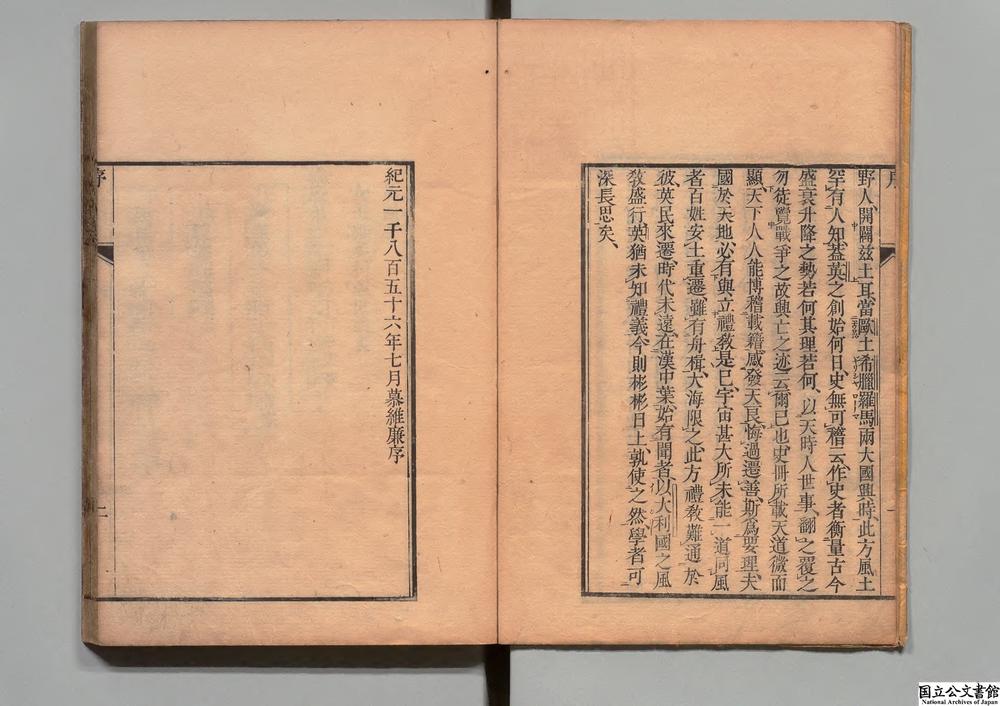 野人、開闢茲土耳、當歐土希臘羅馬兩大國興時、此方風土
罕有人知、蓋英之創始何日、史無可稽云、作史者衡量古今
盛衰升降之勢若何、其理若何、以天時人世事、翻之覆之
勿徒覽戰爭之故、興亡之迹云爾已也、史冊所載、天道微而
顯、天下人人能博稽載籍、感發天良、悔過遷善、斯爲要理、夫
國於天地、必有與立、禮教是已、宇宙甚大、所未能一道同風
者、百姓安土重遷、雖有舟楫、大海限之、此方禮教難通於
彼、英民來遷、時代未遠、在漢中葉、始有聞者、以大利國之風
敎盛行、英猶未知禮義、今則彬彬日上、孰使之然、學者可
深長思矣、
紀元一千八百五十六年七月慕維廉序
序
二
国立公文書館
National Archives of Japan